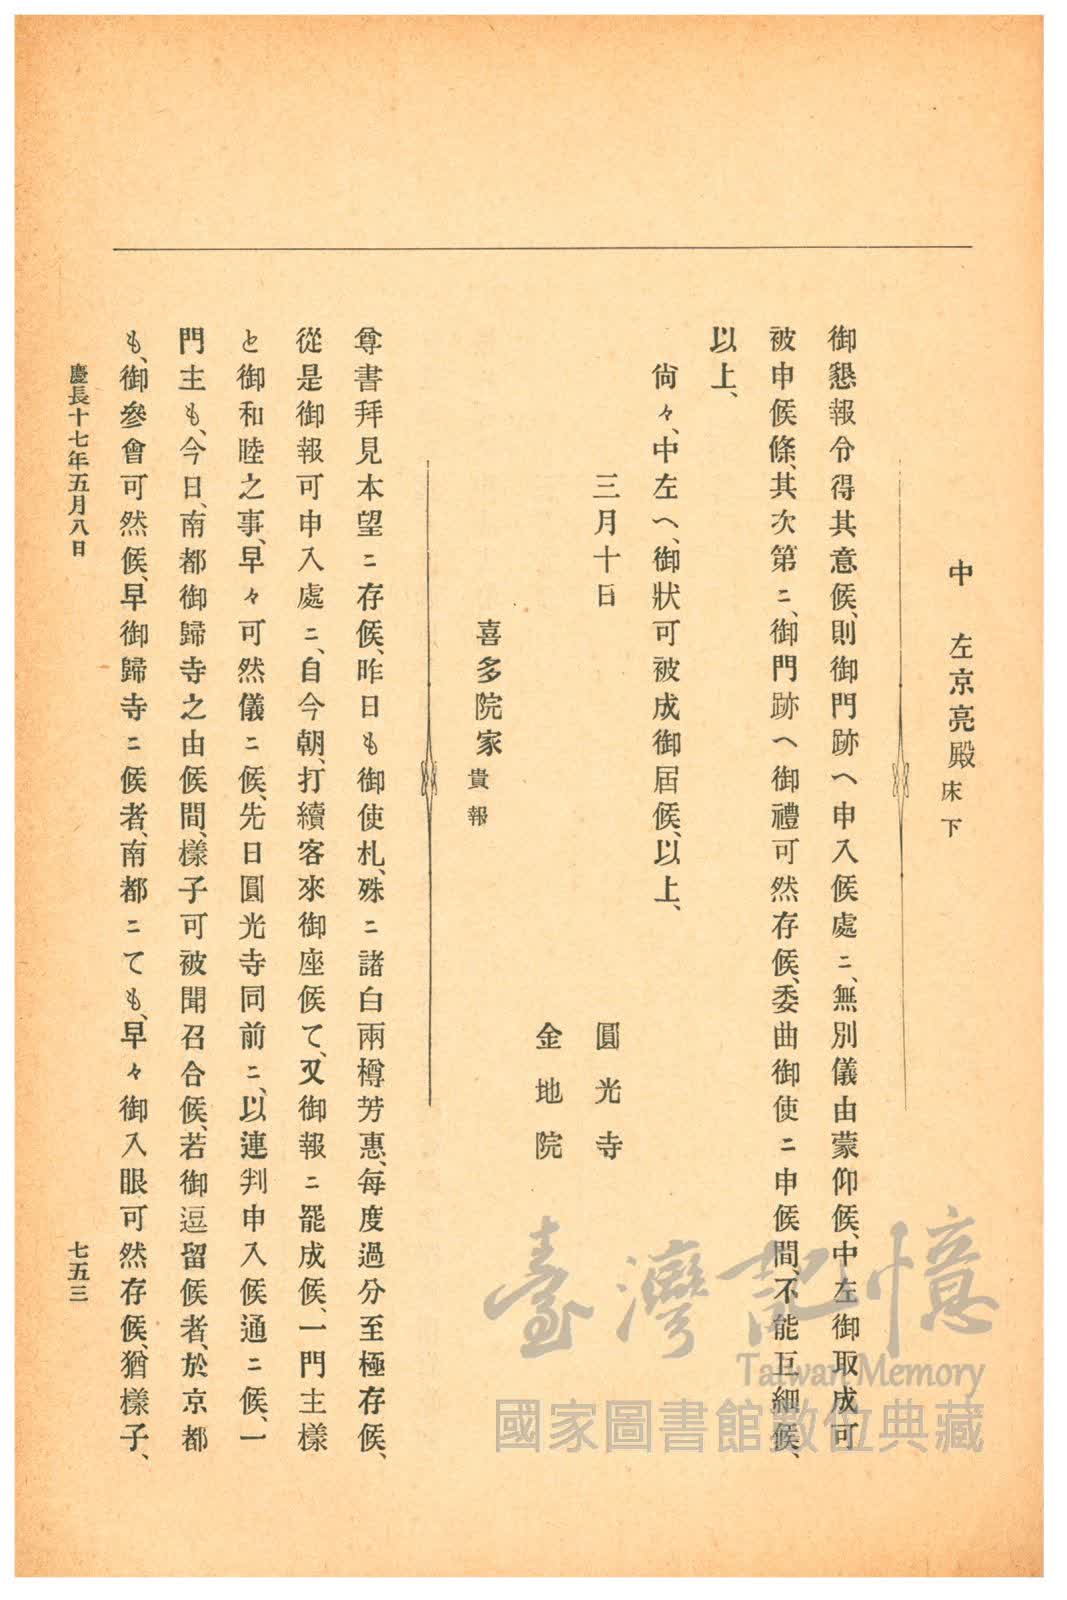 中　左京亮殿 床下
御懇報令得其意候、則御門跡へ申入候處ニ、無別儀由蒙仰候、中左御取成可
被申候條、其次第ニ、御門跡へ御禮可然存候、委曲御使ニ申候間、不能巨細候、
以上、
尙々、中左へ、御狀可被成御屆候、以上、
三月十日
圓光寺
金地院
喜多院家 貴報
尊書拜見本望ニ存候、昨日も御使札、殊ニ諸白兩樽芳惠、每度過分至極存候、
從是御報可申入處ニ、自今朝、打續客來御座候て、又御報ニ罷成候、一門主樣
と御和睦之事、早々可然儀ニ候、先日圓光寺同前ニ、以連判申入候通ニ候、一
門主も、今日、南都御歸寺之由候間、樣子可被聞召合候、若御逗留候者、於京都
も、御參會可然候、早御歸寺ニ候者、南都ニても、早々御入眼可然存候、猶樣子、
慶長十七年五月八日
七五三
臺灣記憶
Taiwan Memory
國家圖書館數位典藏